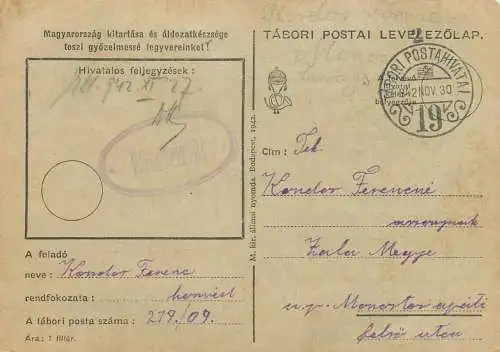 Magyarország kitartása és áldozatkészsége
teszi győzelmessé fegyvereinket!
Hivatalos feljegyzések :
942 XI 27
A feladó
neve : Kondor Ferenc
rendfokozata : honvéd
A tábori posta száma : 219/09.
Ára : 1 fillér.
M. kir. állami nyomda, Budapest, 1942.
TÁBORI POSTAI LEVELEZŐLAP.
TÁBORI POSTAHIVATAL
942 NOV. 30
19
Cím : Tek.
Kondor Ferencné
asszonynak
Zala Megye
u. p. Monostor
felső utca